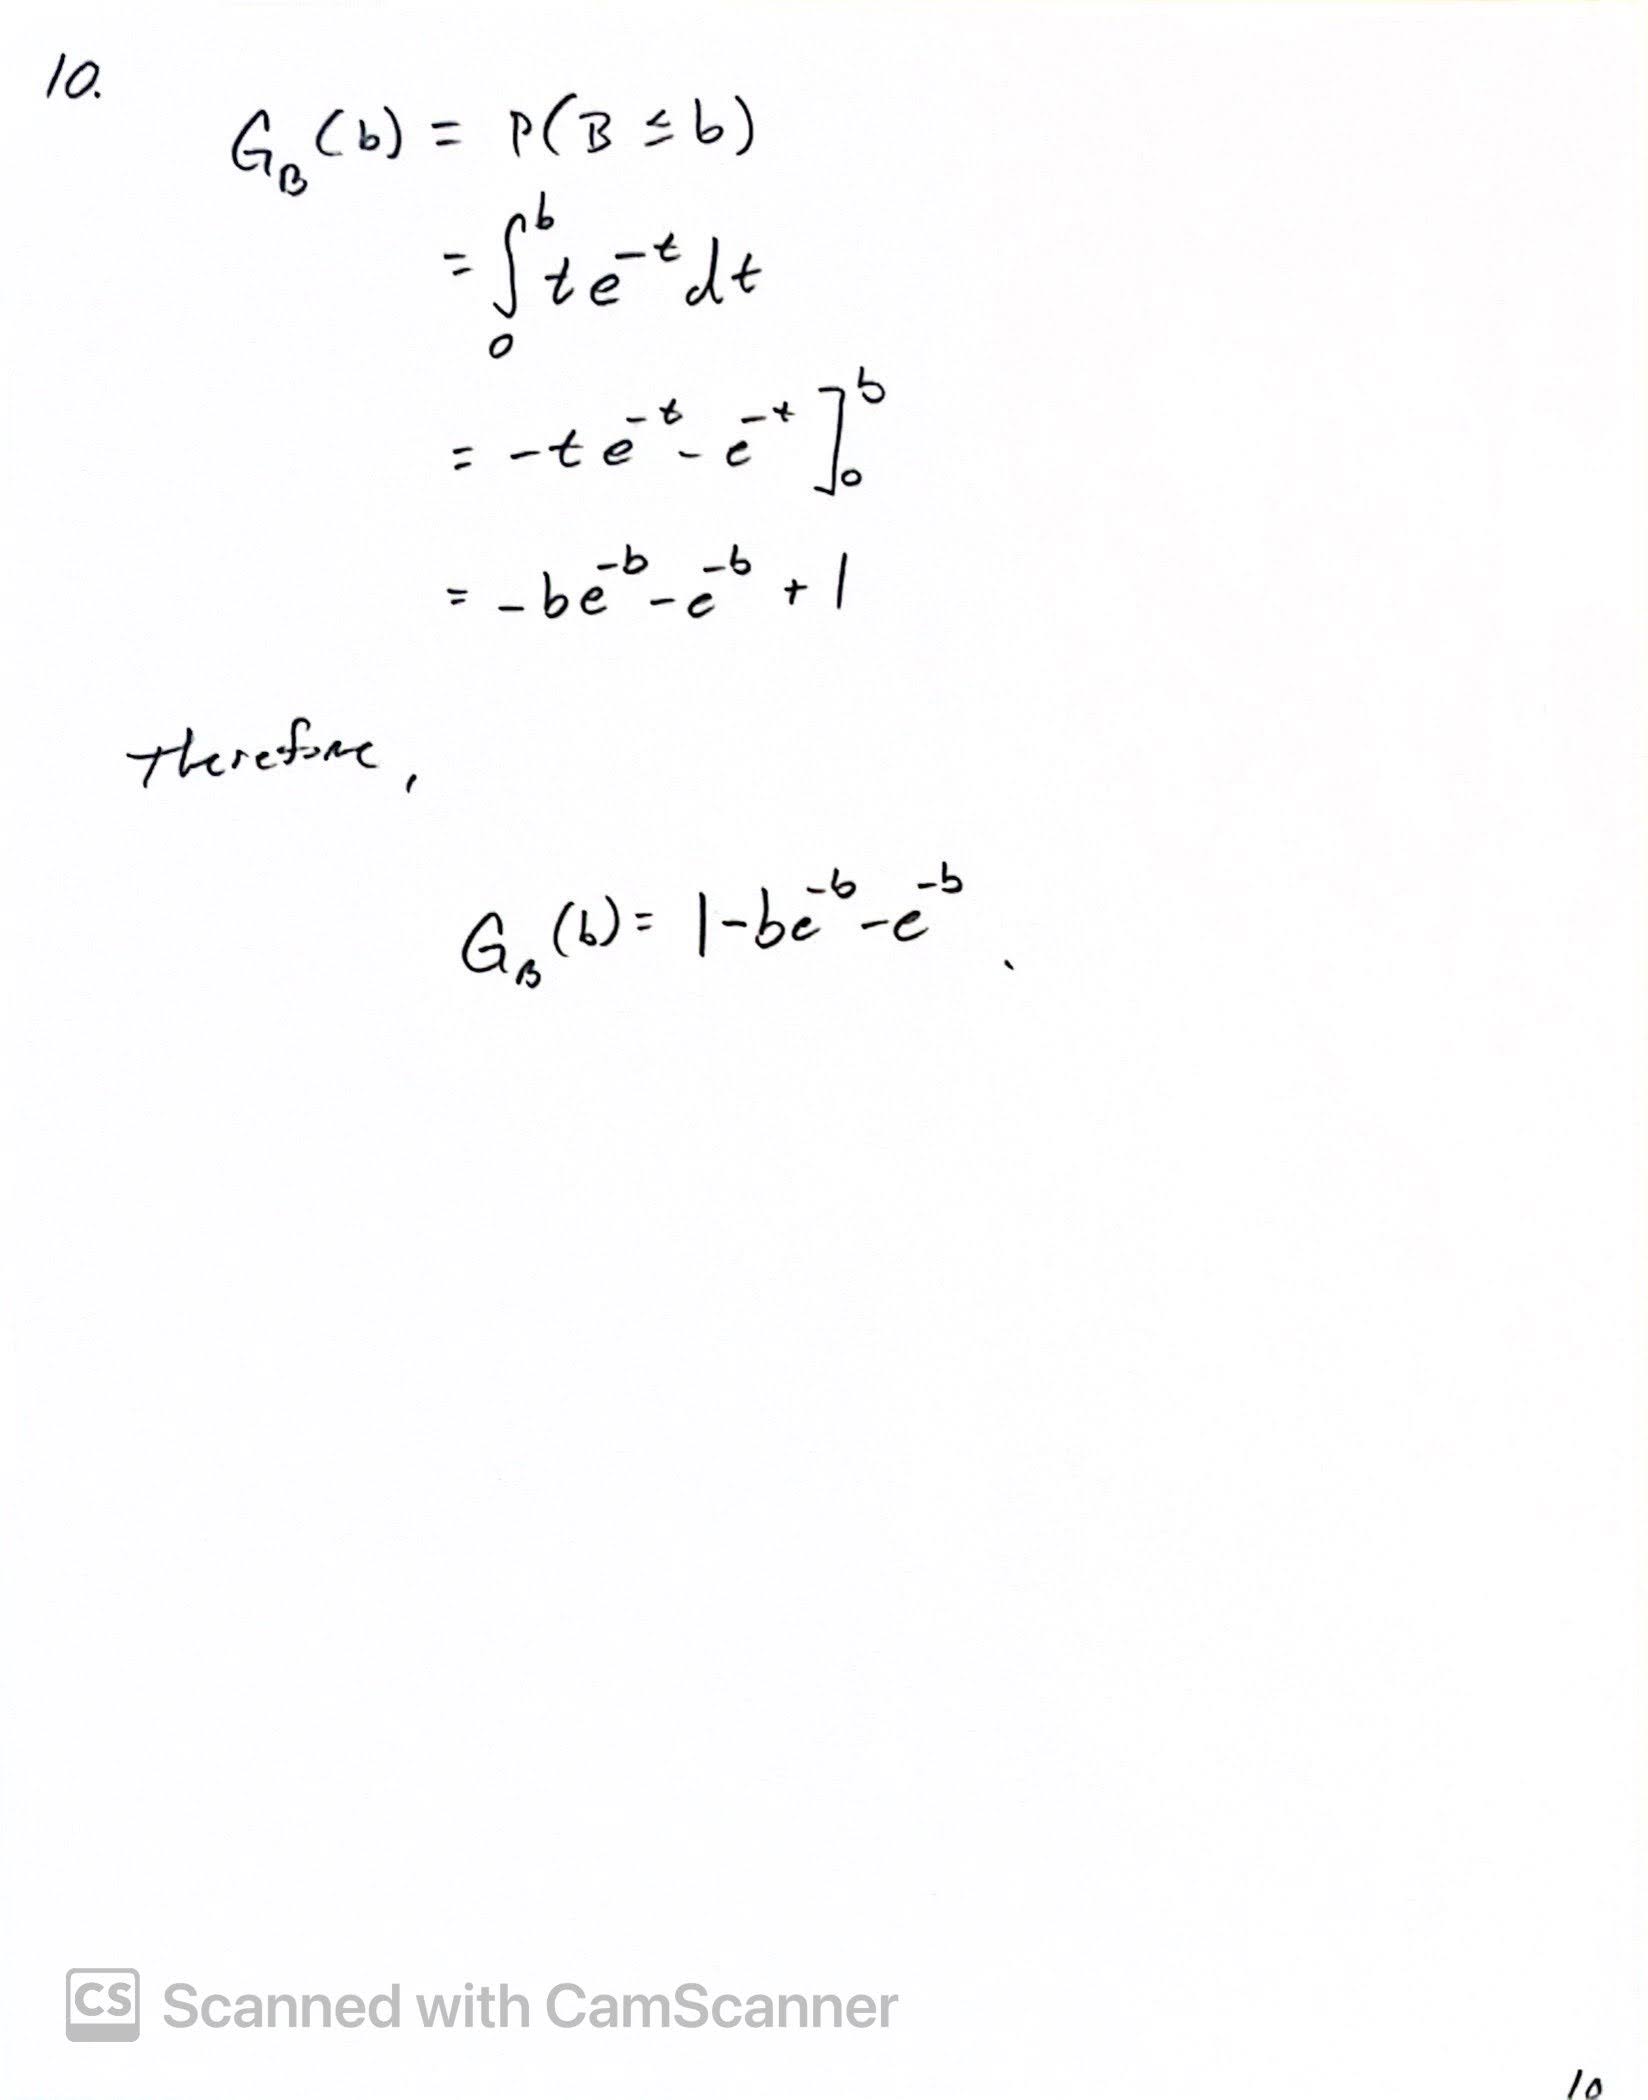 10.
G_B (b) = P(B ≤ b)
= ∫_0^b t e^{-t} dt
= -t e^{-t} - e^{-t} ]_0^b
= -b e^{-b} - e^{-b} + 1
Therefore,
G_B (b) = 1 - b e^{-b} - e^{-b} .
CS Scanned with CamScanner
10